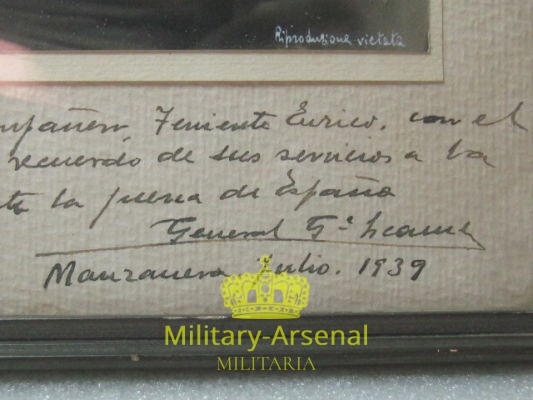 Riproduzione vietata
Teniente Enrico, con el
recuerdo de sus servicios a la
la guerra de España
General Gª
Manzanera Julio. 1939
Military-Arsenal
MILITARIA